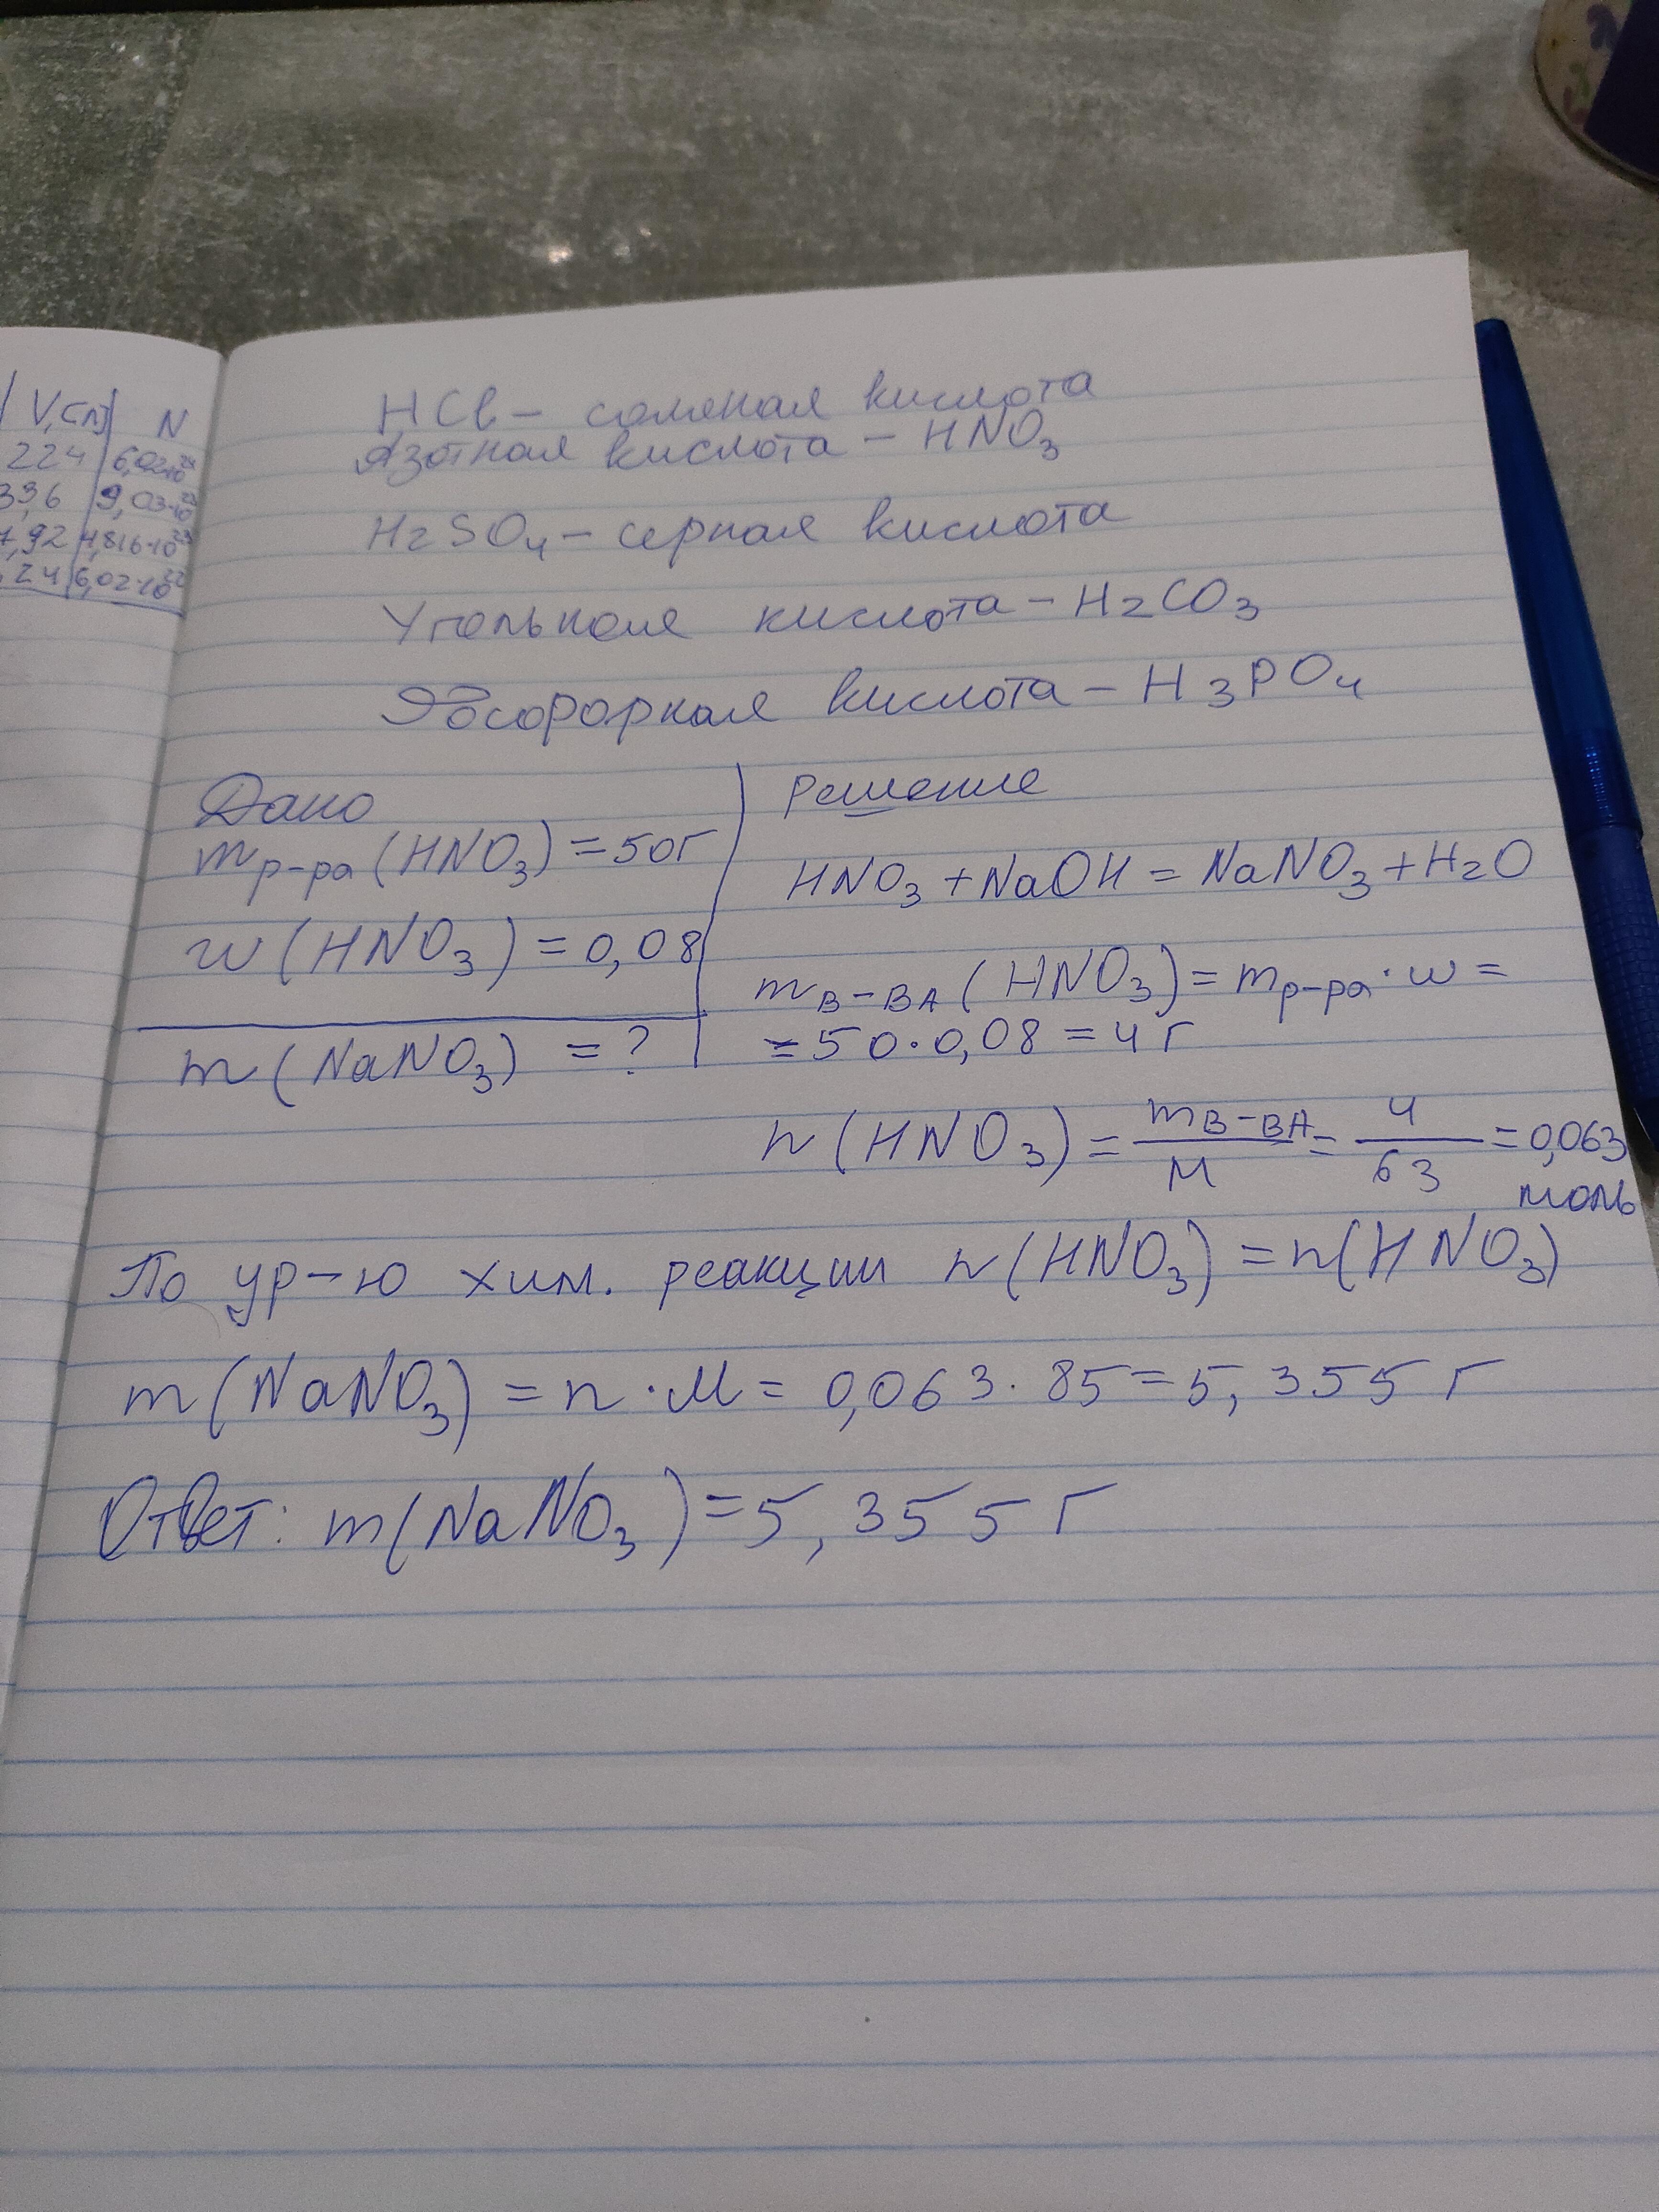 V,(л) N
224 6,02·10²⁴
33,6 9,03·10²³
,92 4,816·10²³
,24 6,02·10²²
HCl – соляная кислота
Азотная кислота – HNO₃
H₂SO₄ – серная кислота
Угольная кислота – H₂CO₃
Фосфорная кислота – H₃PO₄
Дано
m р-ра (HNO₃) = 50г
w (HNO₃) = 0,08
m (NaNO₃) = ?
Решение
HNO₃ + NaOH = NaNO₃ + H₂O
m в-ва (HNO₃) = m р-ра · w =
= 50 · 0,08 = 4 г
n (HNO₃) = m в-ва / M = 4 / 63 = 0,063
моль
По ур-ю хим. реакции n(HNO₃) = n(HNO₃)
m (NaNO₃) = n · M = 0,063 · 85 = 5,355 г
Ответ: m(NaNO₃) = 5,355 г